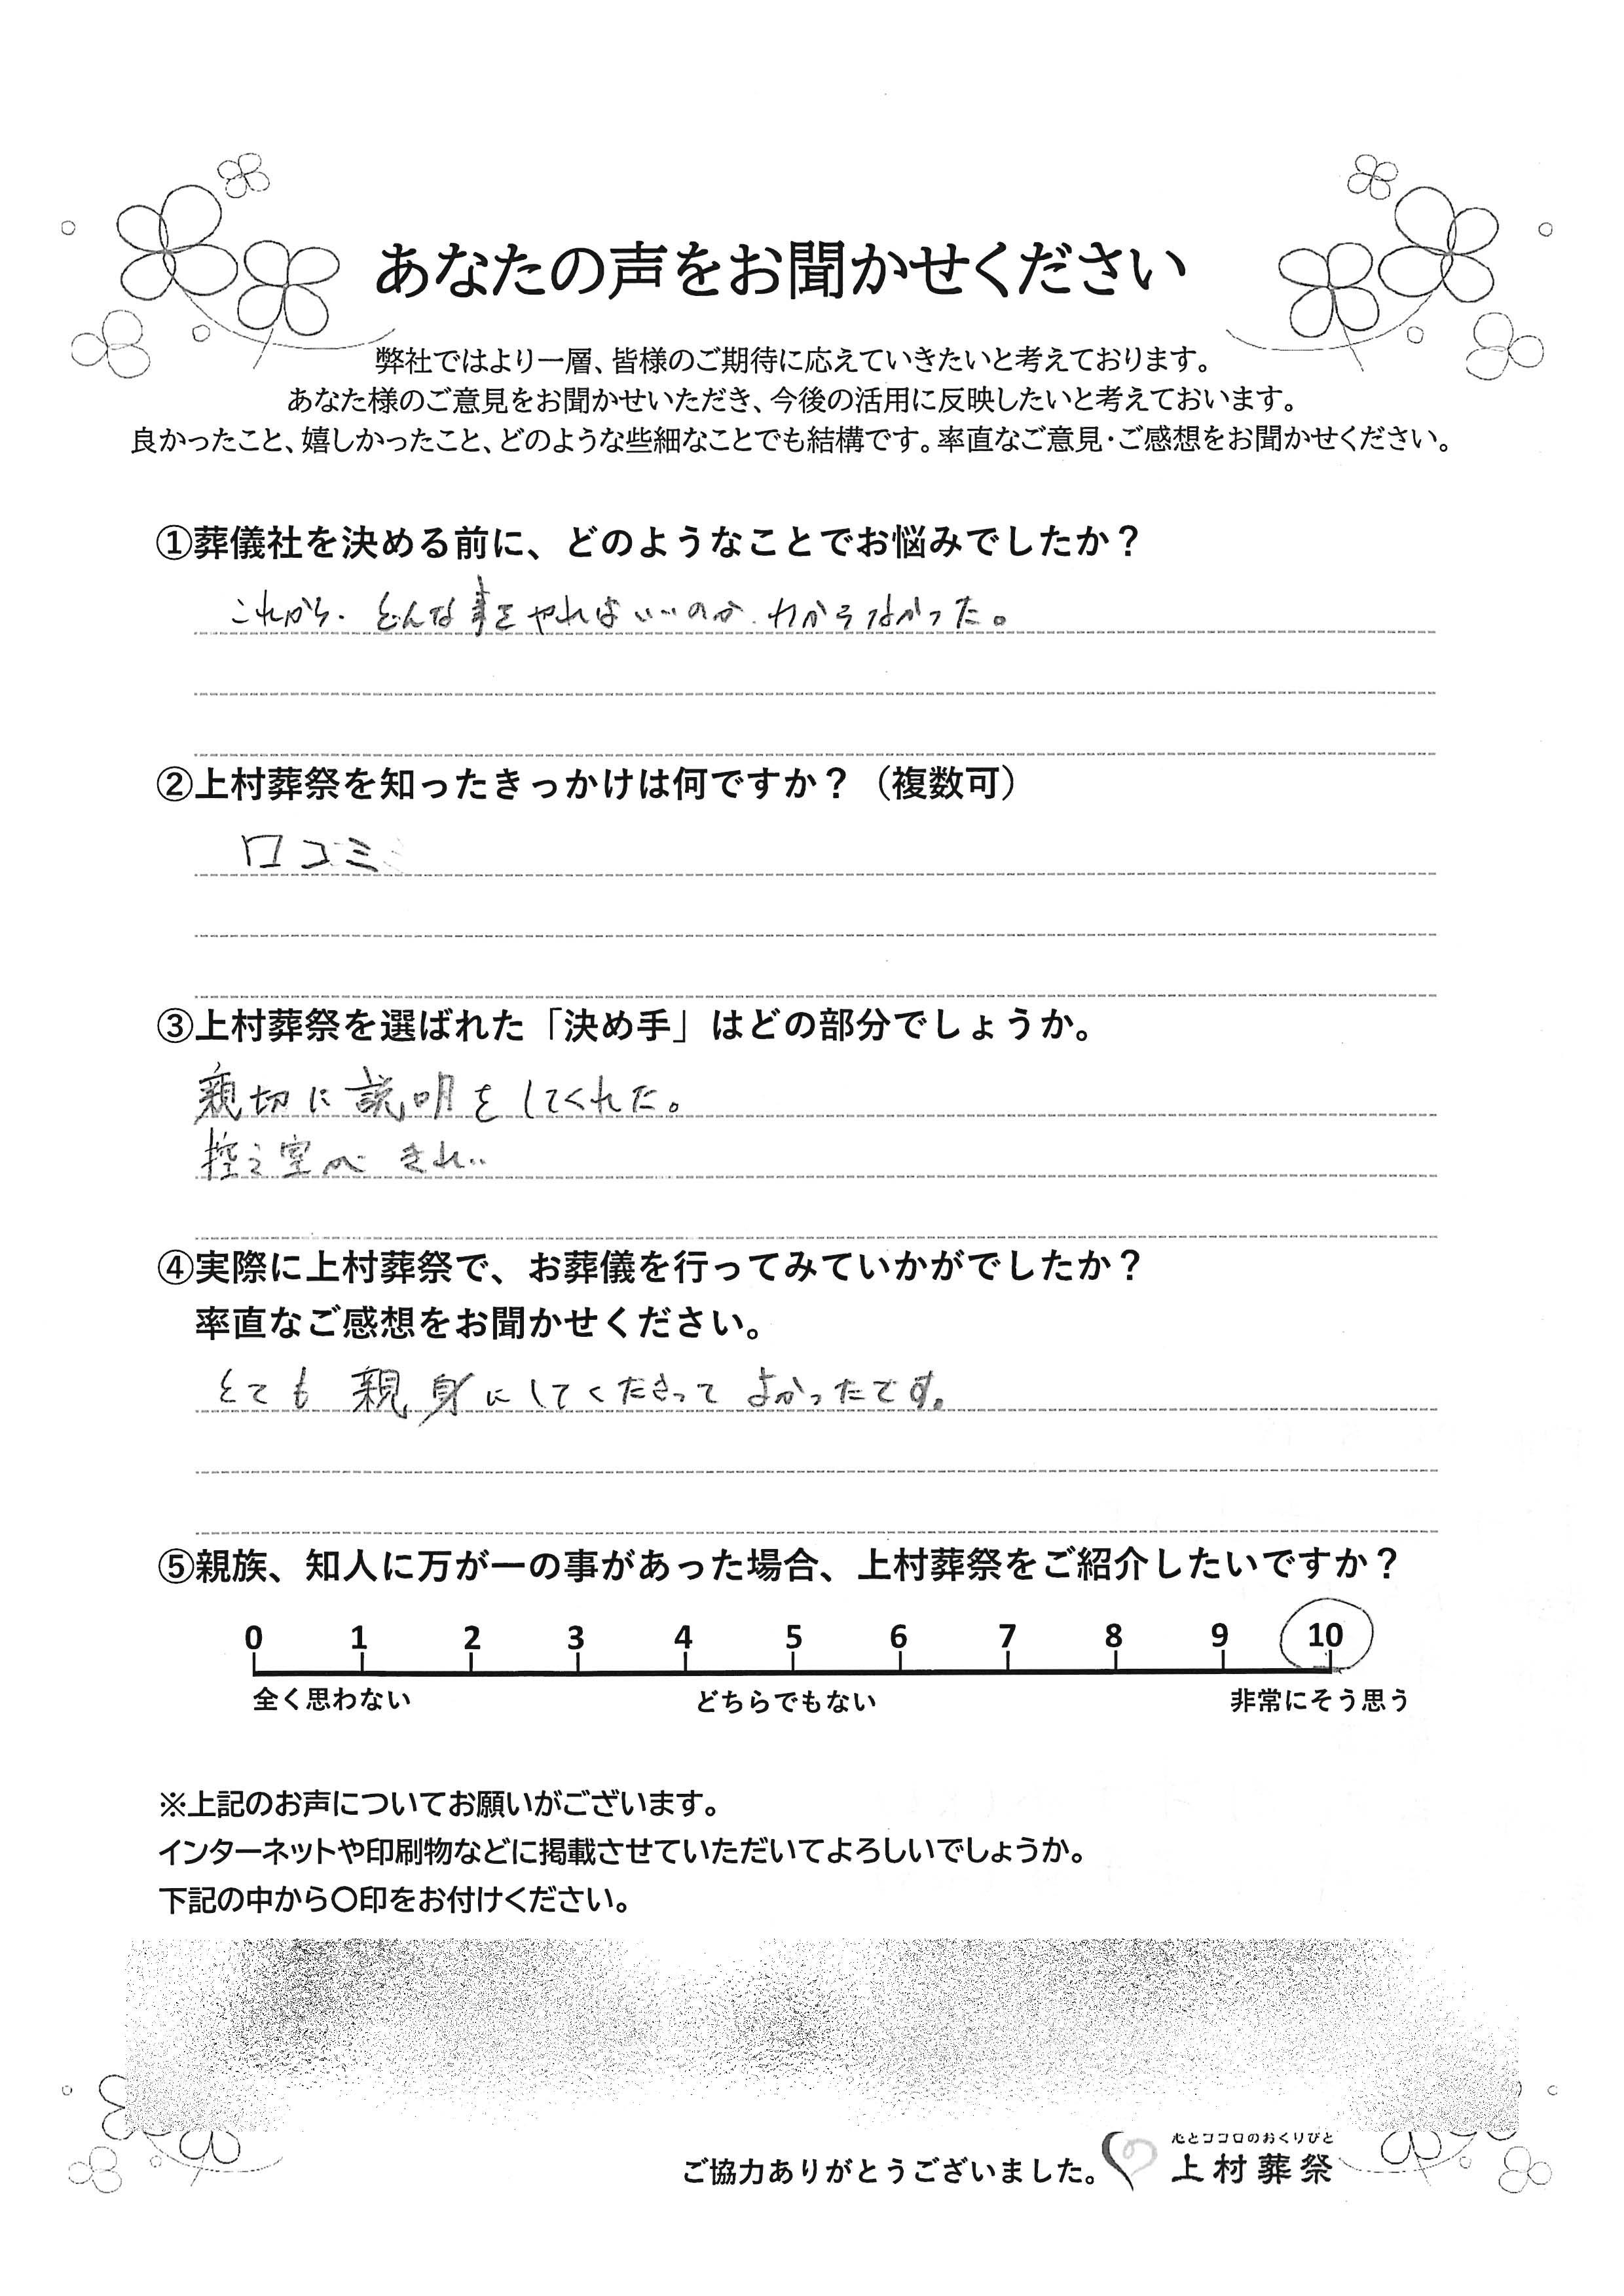 あなたの声をお聞かせください
弊社ではより一層、皆様のご期待に応えていきたいと考えております。
あなた様のご意見をお聞かせいただき、今後の活用に反映したいと考えておいます。
良かったこと、嬉しかったこと、どのような些細なことでも結構です。率直なご意見・ご感想をお聞かせください。
①葬儀社を決める前に、どのようなことでお悩みでしたか？
これから、どんな事をやればいいのか、わからなかった。
②上村葬祭を知ったきっかけは何ですか？（複数可）
口コミ
③上村葬祭を選ばれた「決め手」はどの部分でしょうか。
親切に説明をしてくれた。
控え室が きれい
④実際に上村葬祭で、お葬儀を行ってみていかがでしたか？
率直なご感想をお聞かせください。
とても 親身にしてくださって よかったです。
⑤親族、知人に万が一の事があった場合、上村葬祭をご紹介したいですか？
0 1 2 3 4 5 6 7 8 9 10
全く思わない どちらでもない 非常にそう思う
※上記のお声についてお願いがございます。
インターネットや印刷物などに掲載させていただいてよろしいでしょうか。
下記の中から〇印をお付けください。
心とココロのおくりびと
ご協力ありがとうございました。 上村葬祭